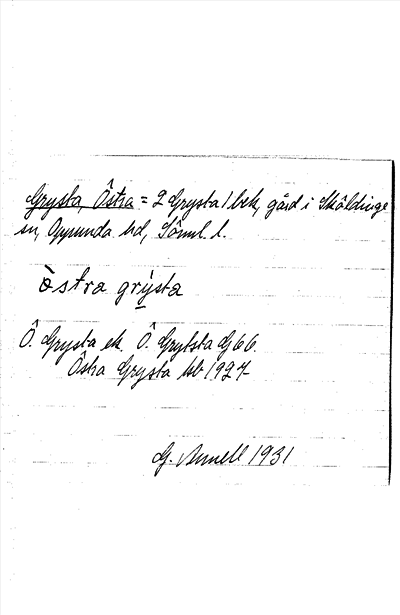 Grysta, Östra = 2 Grysta 1 bek, gård i Sköldinge
sn, Oppunda hd, Söml. l.
östra grysta
Ö. Grysta ek. Ö. Grytsta Gj 66.
Östra Grysta kb 1927
G. Annell 1931